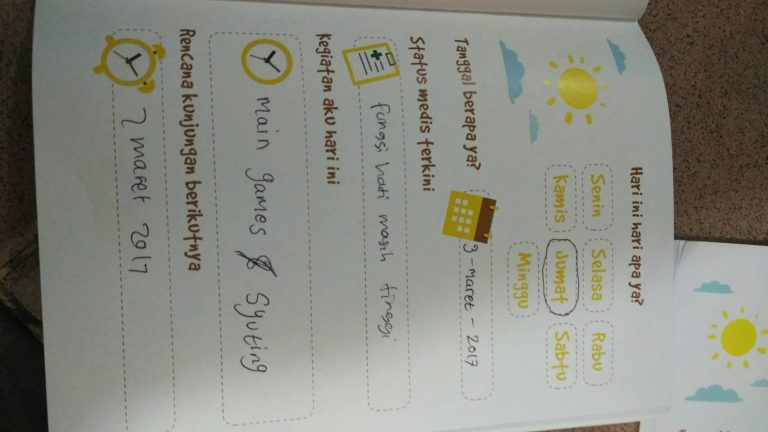 Hari ini hari apa ya?
Senin Selasa Rabu
Kamis Jumat Sabtu
Minggu
Tanggal berapa ya?
3 - maret - 2017
Status medis terkini
fungsi hati masih tinggi
Kegiatan aku hari ini
main games & syuting
Rencana kunjungan berikutnya
7 maret 2017